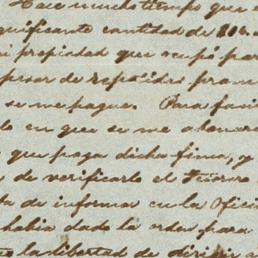 Hace mucho tiempo que
significante cantidad de 818.
mi propiedad que ocupó par
pesar de repetidas prom
se me pague. Para fac
do en que se me abonar
que paga dicha firma, y
de verificarlo el Tesoro
ta de informar en la Ofici
habia dado la orden para
la libertad de dirigir a